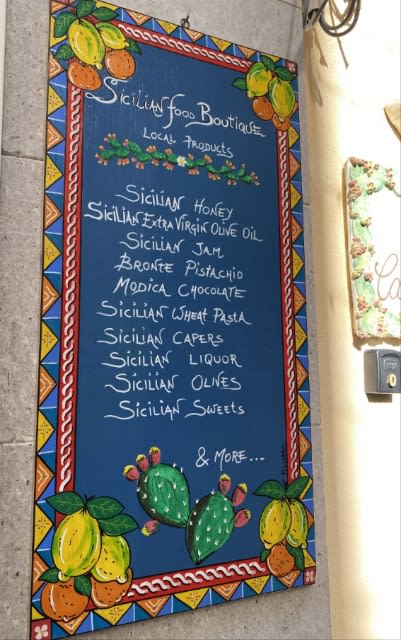 Sicilian Food Boutique
Local Products
Sicilian Honey
Sicilian Extra Virgin Olive Oil
Sicilian Jam
Bronte Pistachio
Modica Chocolate
Sicilian Wheat Pasta
Sicilian Capers
Sicilian Liquor
Sicilian Olives
Sicilian Sweets
& More...